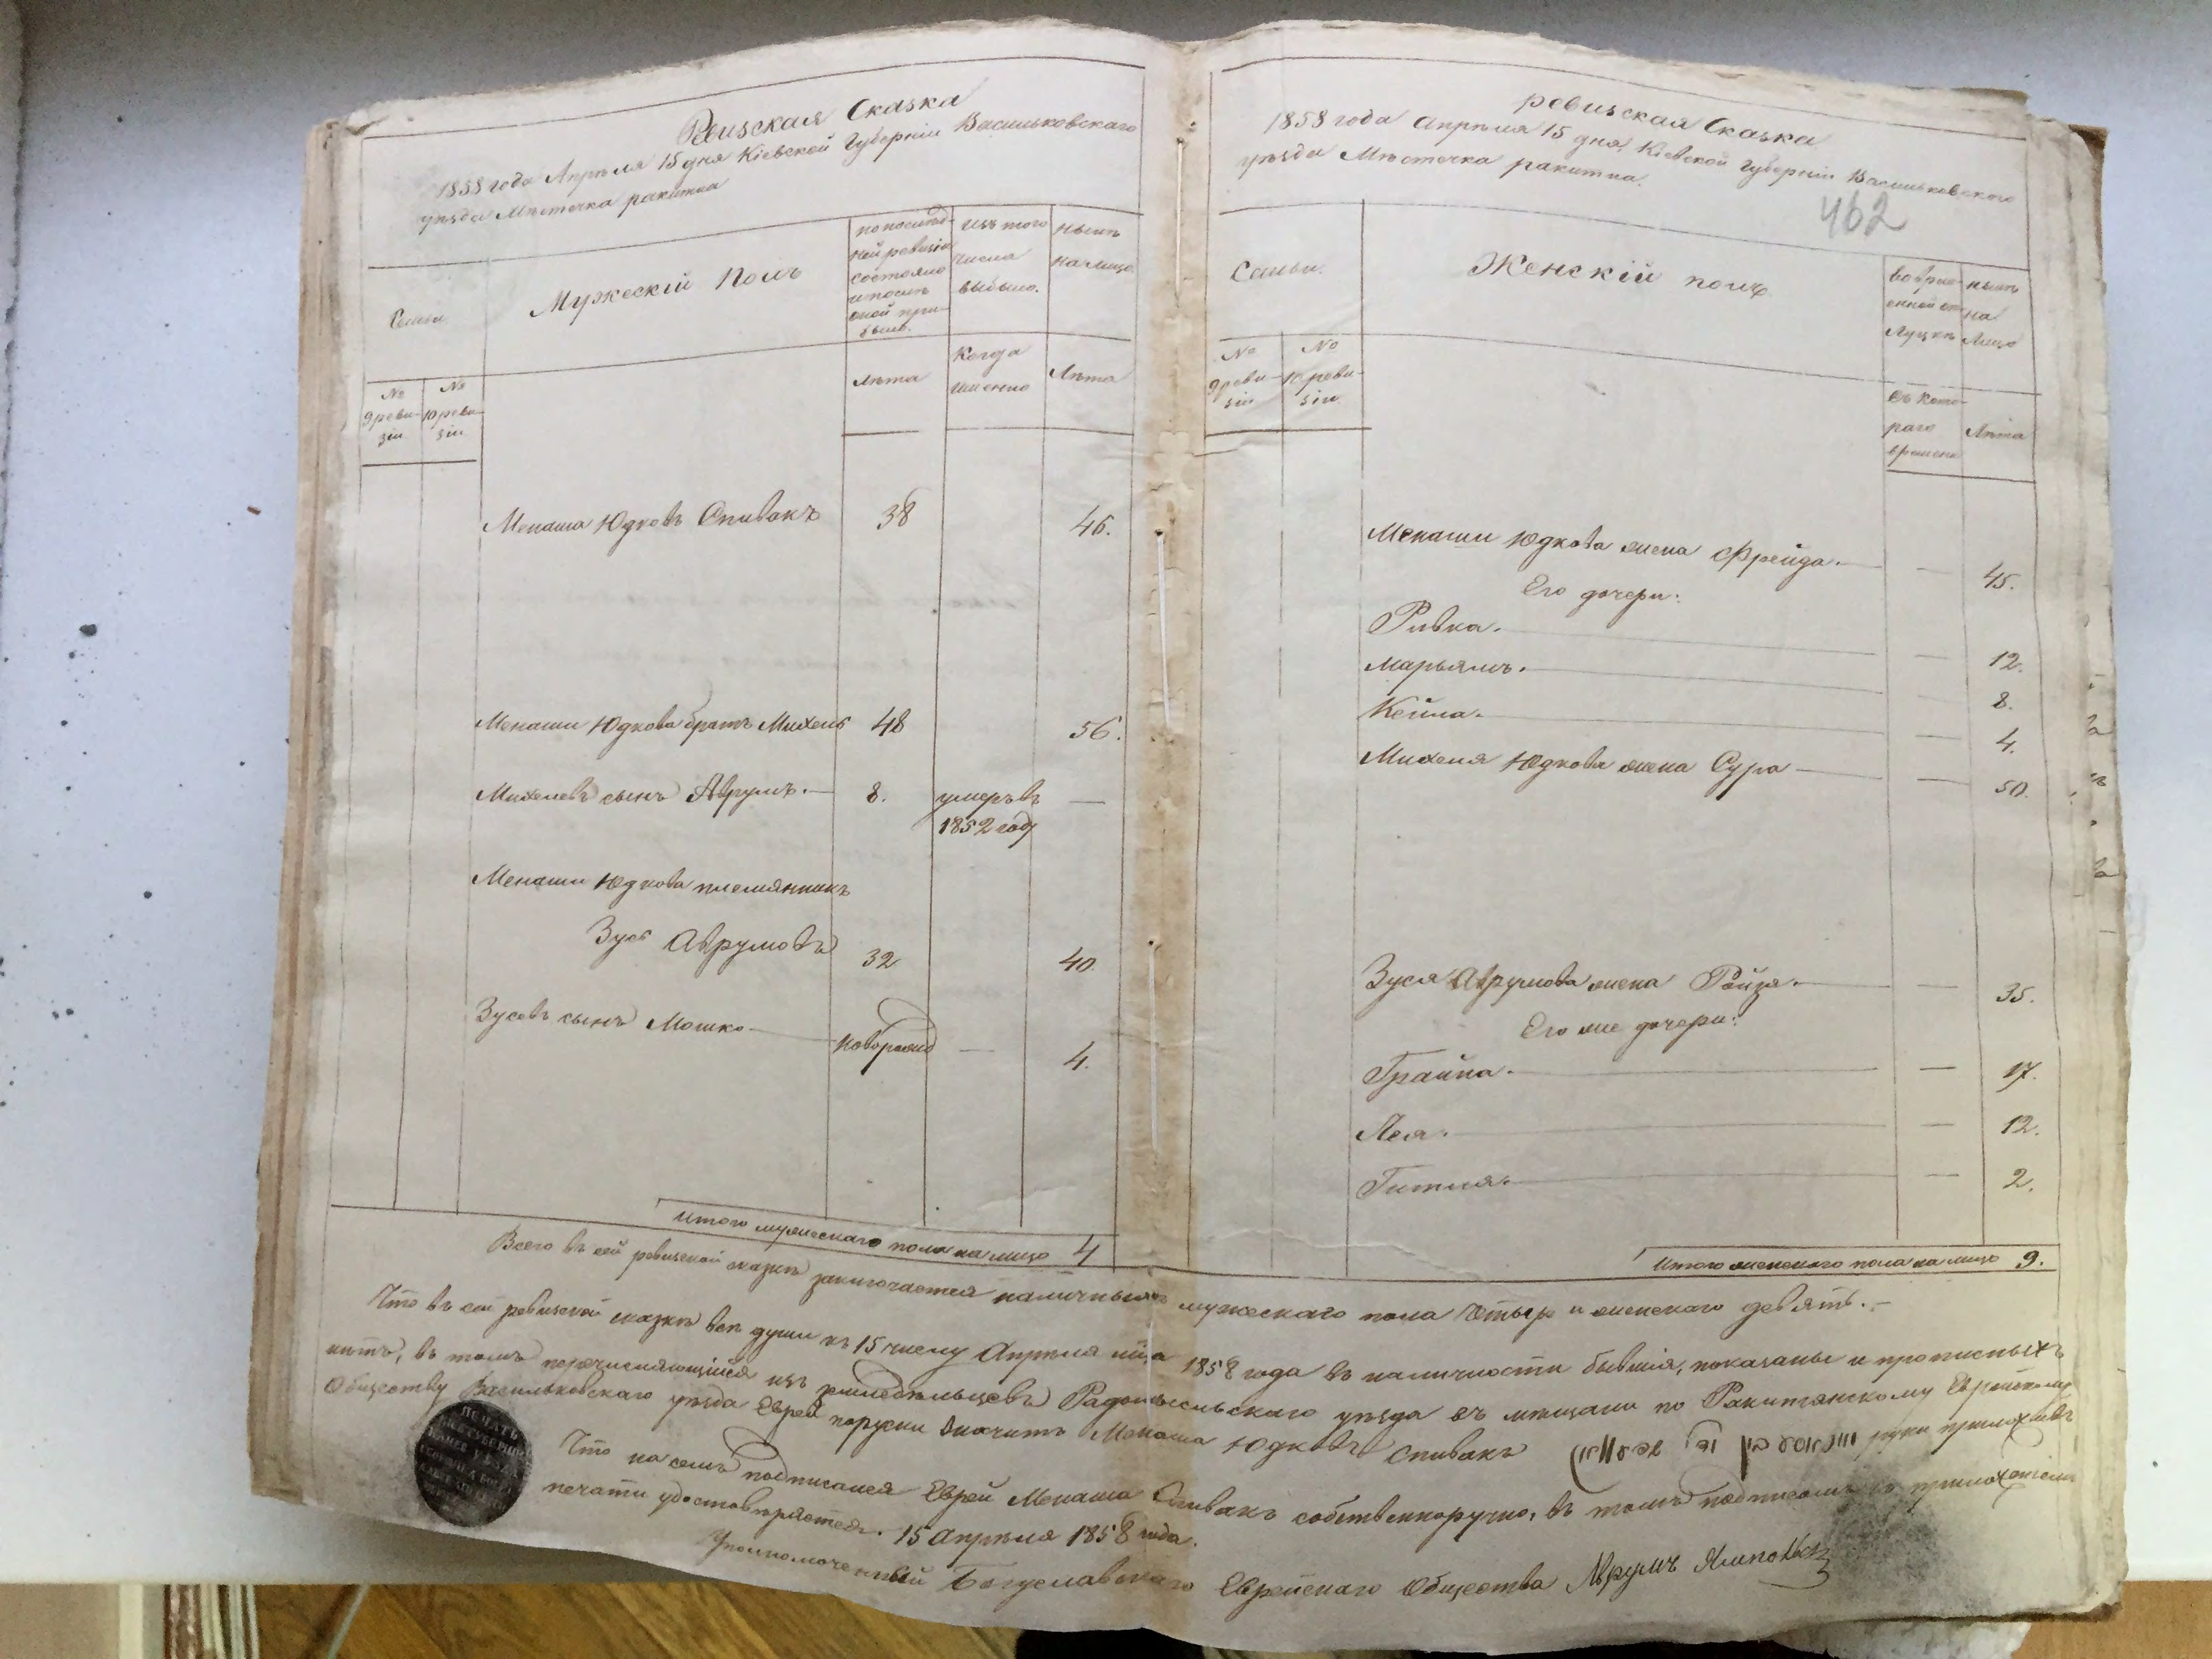 Ревизская Сказка
1858 года Апрѣля 15 дня Кіевской Губерніи Васильковскаго
уѣзда Мѣстечка ракитна
Семьи
Мужескій Полъ
по послѣд-
ней ревизіи
состояло
и послѣ
оной при-
было.
изъ того
числа
выбыло.
нынѣ
на лицо
№
9 реви-
зіи
№
10 реви-
зіи
лѣта
Когда
именно
Лѣта
Менаша Юдковъ Спивакъ 38 46.
Менаши Юдкова братъ Михель 48 56.
Михелевъ сынъ Аврумъ. — 8. умеръ въ —
1852 году
Менаши Юдкова племянникъ
Зусь Аврумовъ 32 40.
Зусевъ сынъ Мошко — новорожд — 4.
Итого мужескаго пола на лицо 4
ревизская Сказка
1858 года Апрѣля 15 дня, Кіевской Губерніи Васильковского
уѣзда Мѣстечка ракитна.
462
Семьи.
Женскій полъ
во врем-
енной от
лучкѣ
нынѣ
на
Лицо
№
9 реви-
зіи
№
10 реви-
зіи.
съ кото-
раго
времени
Лѣта
Менаши Юдкова жена Фрейда. — — 45.
Его дочери:
Ривка. — — 12.
Марьямъ. — — 8.
Кейла. — — 4.
Михеля Юдкова жена Сура — — 50.
Зуся Аврумова жена Ройзя. — — 35.
Его же дочери:
Грайна. — — 17.
Лея. — — 12.
Гитля. — — 2.
Итого женскаго пола на лицо 9.
Всего въ сей ревизской сказкѣ заключается наличныхъ мужескаго пола четыре и женскаго девять. —
Что въ сей ревизской сказкѣ всѣ души къ 15 числу Апрѣля м-ца 1858 года въ наличности бывшія, показаны и прописныхъ
нѣтъ, въ томъ перечисляющійся изъ земледѣльцевъ Радомысльскаго уѣзда въ мѣщани по Ракитянскому Еврейскому
Обществу Васильковскаго уѣзда Еврей Менаша Юдковъ Спивакъ руки приложивъ
Что на семъ подписался Еврей Менаша Спивакъ собственноручно, въ томъ подписомъ съ приложеніемъ
печати удостовѣряется. 15 Апрѣля 1858 года.
Уполномоченный Богуславскаго Еврейскаго Общества Аврумъ
ПЕЧАТЬ